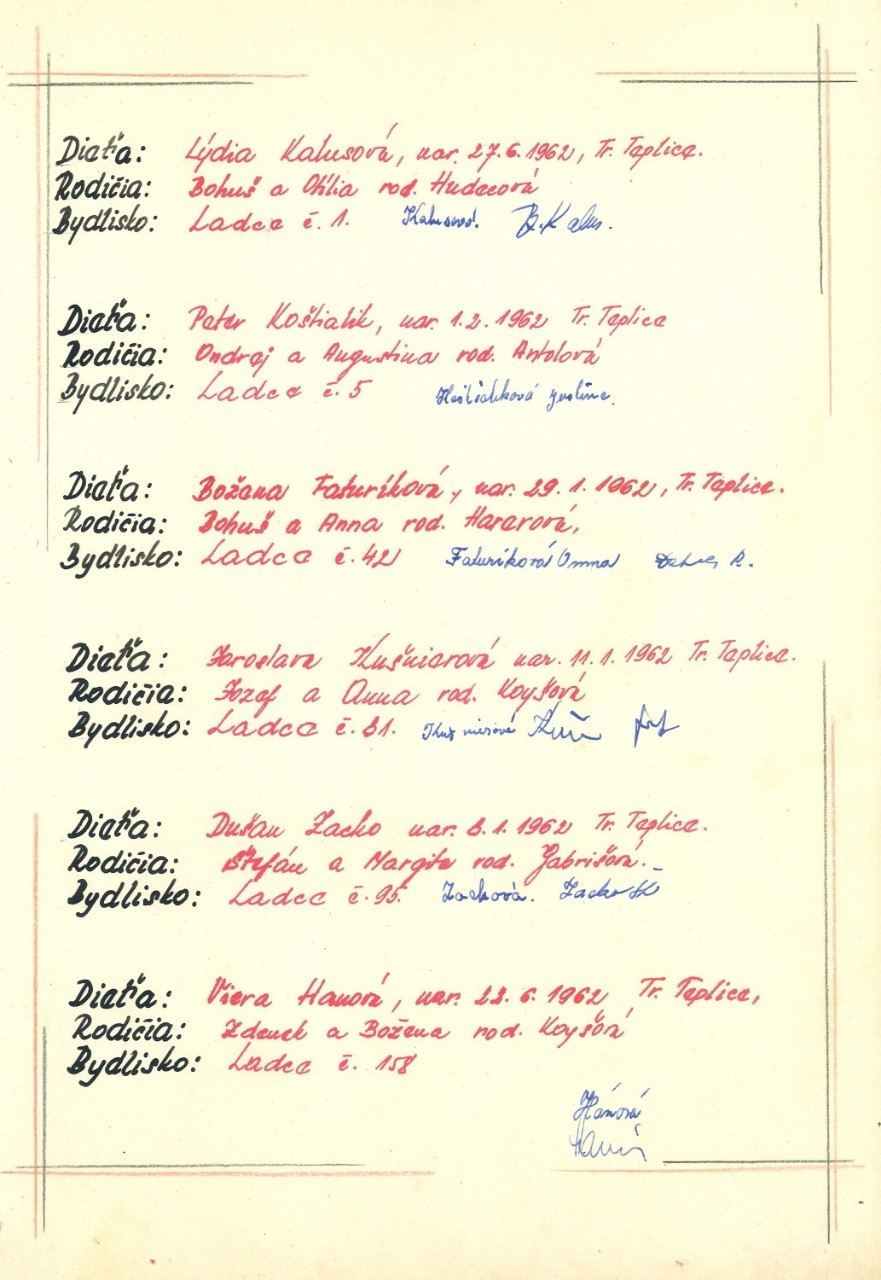 Dieťa: Lýdia Kalusová, nar. 27.6.1962, Tr. Teplice.
Rodičia: Bohuš a Otília rod. Hudecová
Bydlisko: Ladce č. 1. Kalusová. B. Kalus.
Dieťa: Peter Koštialik, nar. 1.2.1962 Tr. Teplice
Rodičia: Ondrej a Augustina rod. Antolová
Bydlisko: Ladce č. 5 Koštialiková
Dieťa: Božena Faturíková, nar. 29.1.1962, Tr. Teplice.
Rodičia: Bohuš a Anna rod. Hararová,
Bydlisko: Ladce č. 42 Faturíková Anna
Dieťa: Jaroslava Kušnierová nar. 11.1.1962 Tr. Teplice.
Rodičia: Jozef a Anna rod. Koyšová
Bydlisko: Ladce č. 81.
Dieťa: Dušan Zacko nar. 8.1.1962 Tr. Teplice.
Rodičia: Štefán a Margita rod. Gabrišová.
Bydlisko: Ladce č. 95. Zacková. Zacko
Dieťa: Viera Hanová, nar. 23.6.1962 Tr. Teplice,
Rodičia: Zdenek a Božena rod. Koyšová
Bydlisko: Ladce č. 158
Hánová